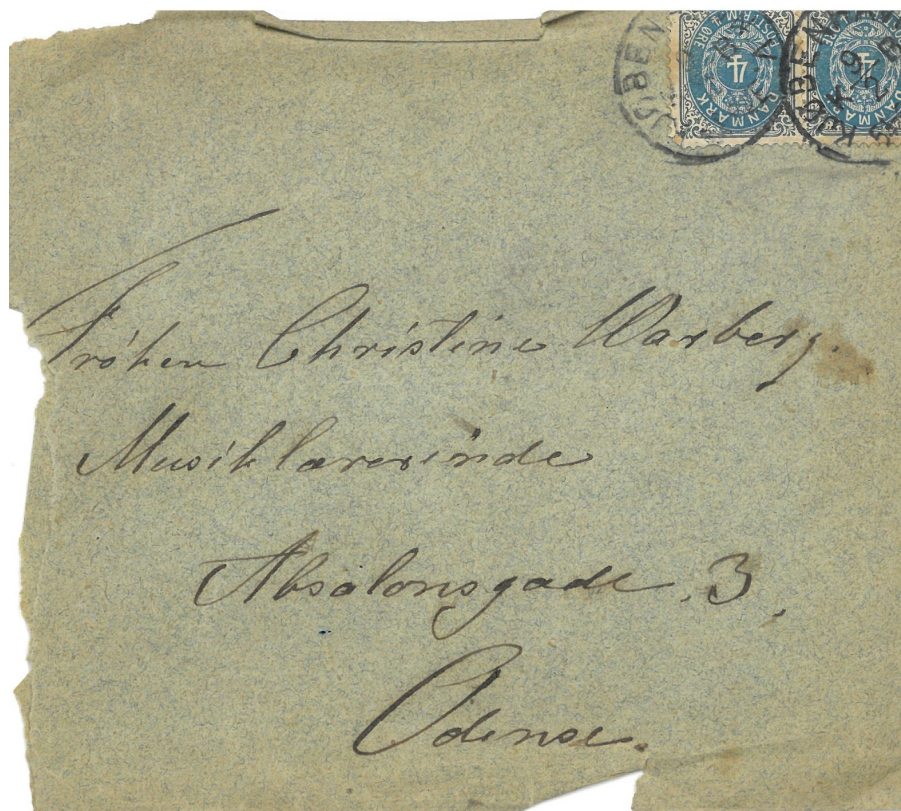 KJØBEN
DANMARK
4
DANMARK
4
KJØBEN
Frøken Christine Warberg.
Musiklærerinde
Absalonsgade. 3.
Odense.